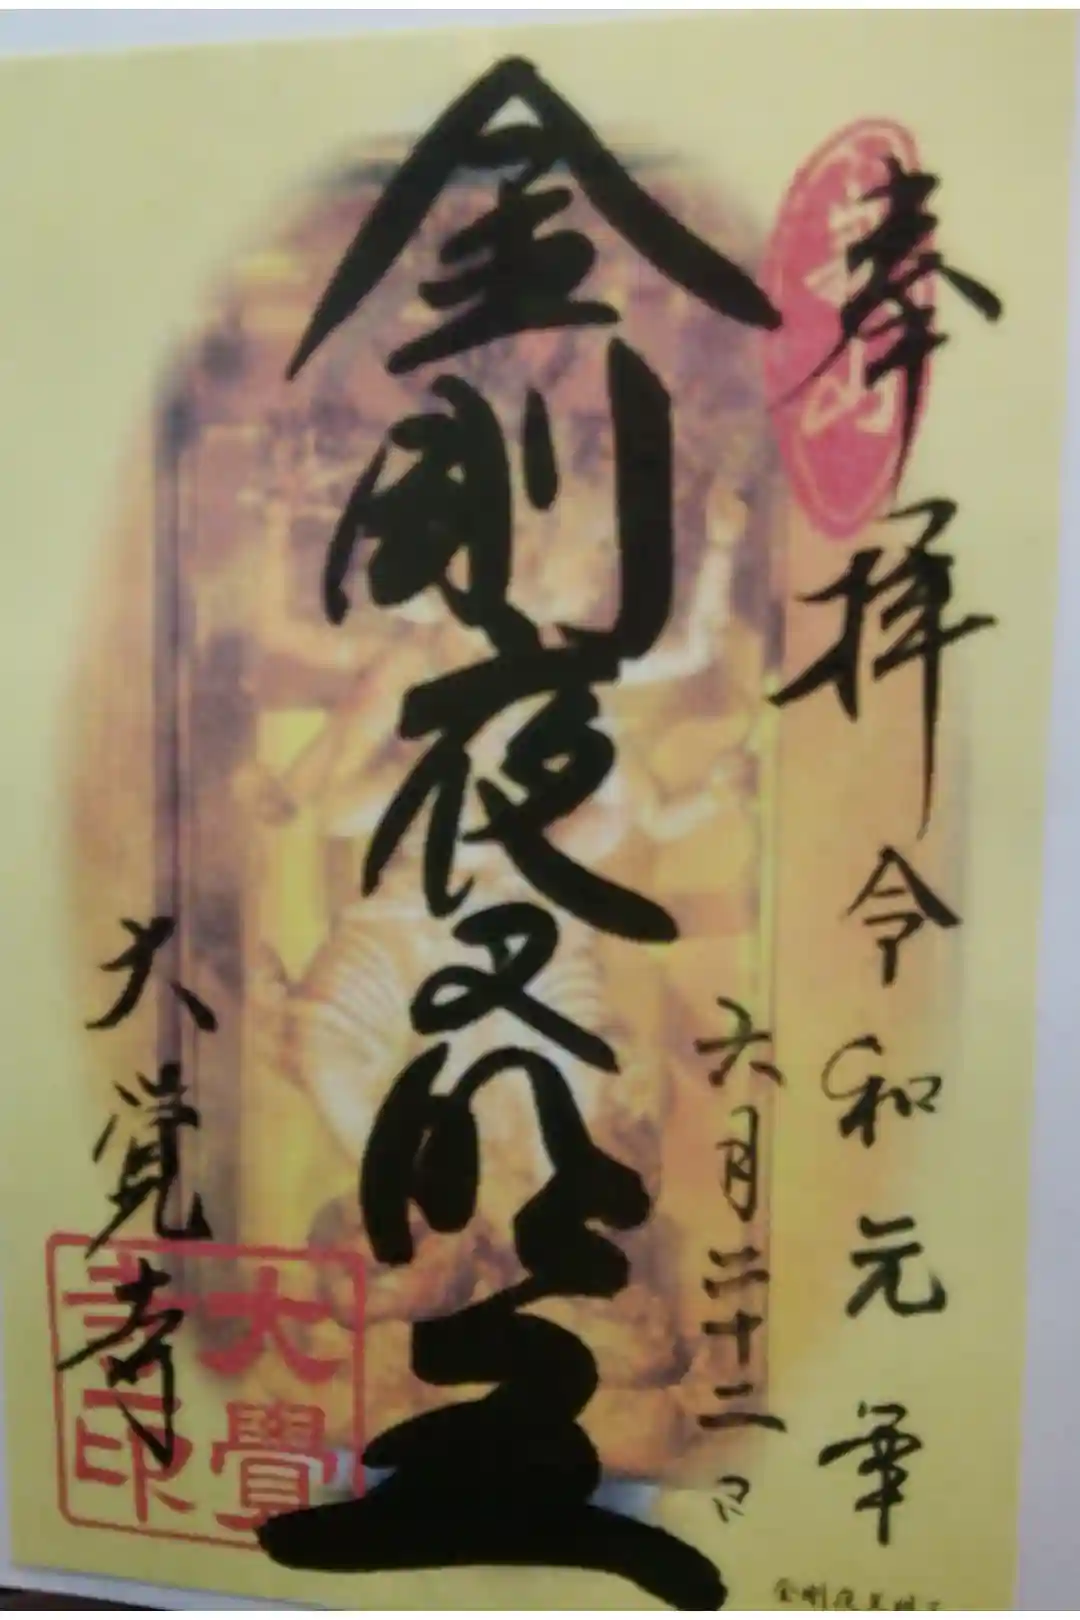 奉拝
令和元年
六月二十二日
金剛夜叉明王
大覚寺
大覺
寺印
金剛夜叉明王